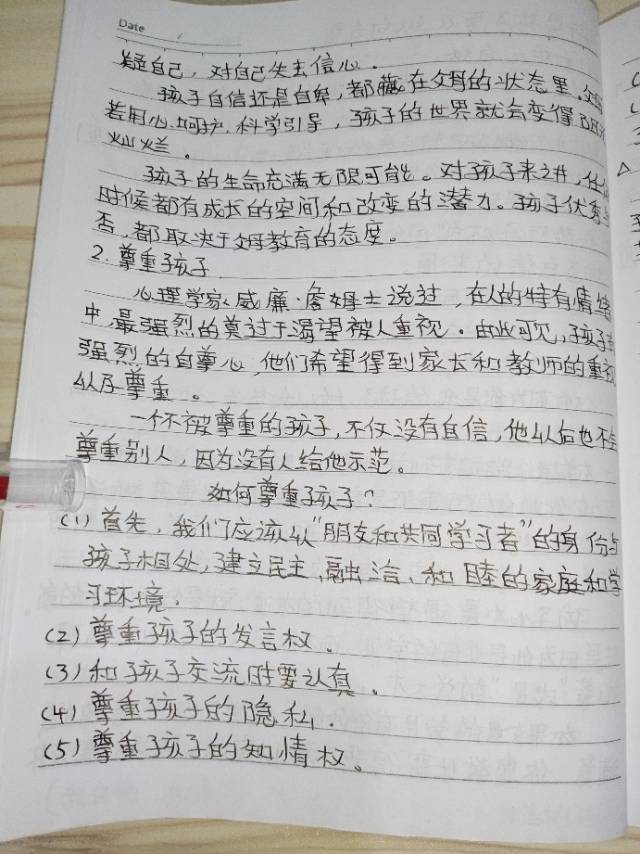 Date
疑自己，对自己失去信心．
孩子自信还是自卑，都藏在父母的状态里，父母
若用心呵护，科学引导，孩子的世界就会变得
灿烂。
孩子的生命充满无限可能。对孩子来讲，任何
时候都有成长的空间和改变的潜力。孩子优秀与
否，都取决于父母教育的态度。
2. 尊重孩子
心理学家威廉·詹姆士说过，在人的特有情绪
中，最强烈的莫过于渴望被人重视．由此可见，孩子有
强烈的自尊心，他们希望得到家长和教师的重视
以及尊重。
一个不被尊重的孩子，不仅没有自信，他以后也不会
尊重别人，因为没有人给他示范。
如何尊重孩子？
(1) 首先，我们应该以“朋友和共同学习者”的身份与
孩子相处，建立民主、融洽、和睦的家庭和学
习环境．
(2) 尊重孩子的发言权．
(3) 和孩子交流时要认真．
(4) 尊重孩子的隐私．
(5) 尊重孩子的知情权。